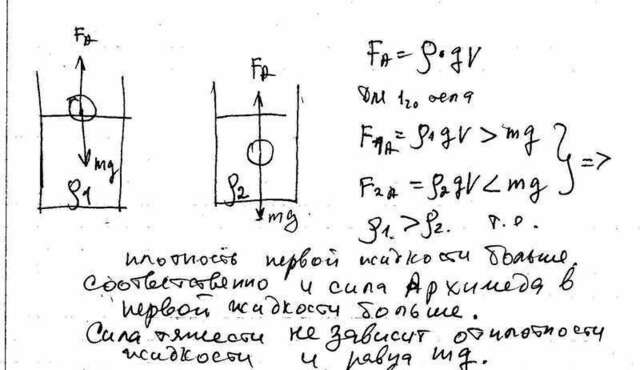 F_A
F_A
F_A = ρ·gV
для 1го тела
F_1A = ρ1gV > mg
mg
=>
ρ1
ρ2
mg
F_2A = ρ2gV < mg
ρ1 > ρ2. т.о.
плотность первой жидкости больше.
Соответственно и сила Архимеда в
первой жидкости больше.
Сила тяжести не зависит от плотности
жидкости и равна mg.